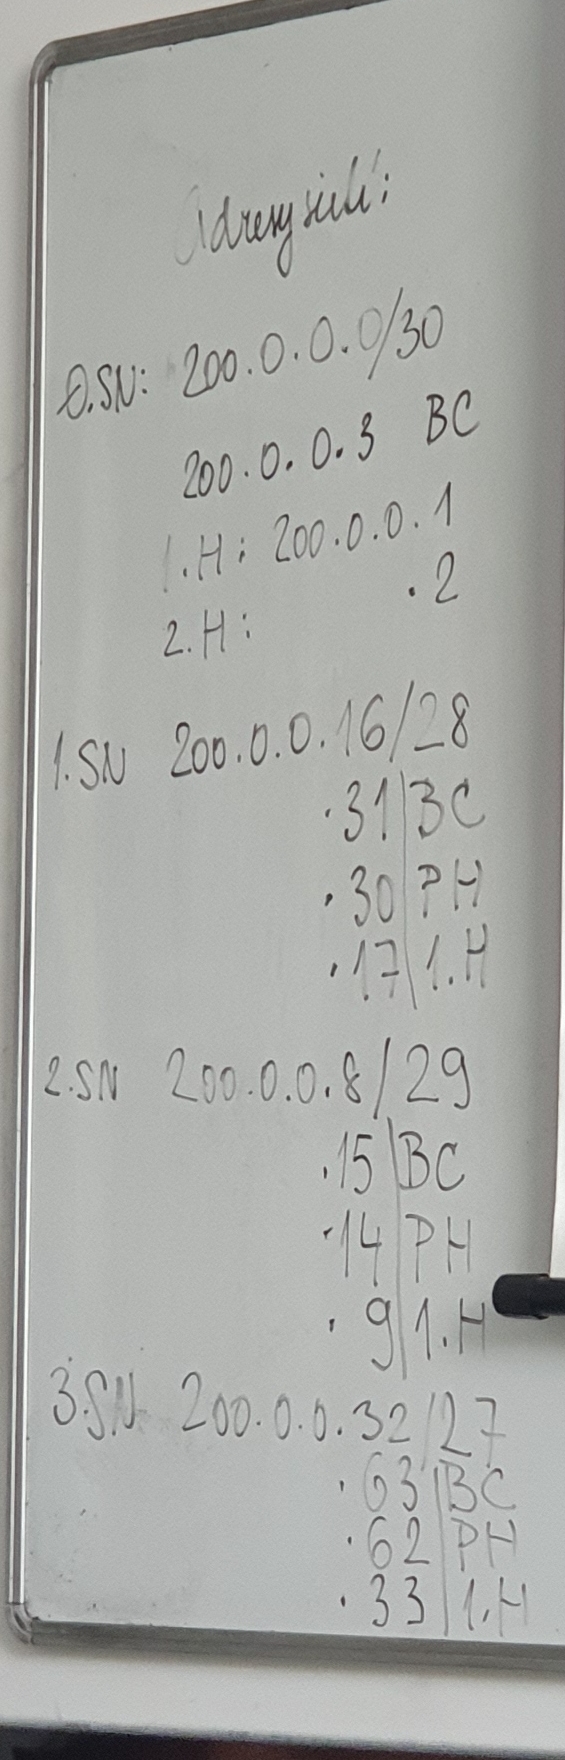 Adresy sítí:
0.SN: 200.0.0.0/30
200.0.0.3 BC
1.H: 200.0.0.1
2.H: .2
1.SN 200.0.0.16/28
.31|BC
.30|PH
.17|1.H
2.SN 200.0.0.8/29
.15|BC
.14|PH
.9|1.H
3.SN 200.0.0.32/27
.63|BC
.62|PH
.33|1.H